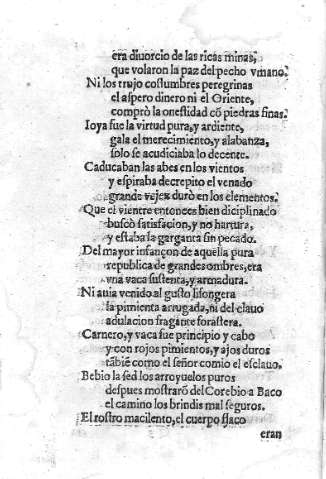 era diuorcio de las ricas minas,
que volaron la paz del pecho vmano.
Ni los trujo costumbres peregrinas
el aspero dinero ni el Oriente,
comprò la onestidad cõ piedras finas.
Ioya fue la virtud pura, y ardiente,
gala el merecimiento, y alabanza,
solo se acudiciaba lo decente.
Caducaban las abes en los vientos
y espiraba decrepito el venado
grande vejez durò en los elementos.
Que el vientre entonces bien diciplinado
buscò satisfacion, y no hartura,
y estaba la garganta sin pecado.
Del mayor infançon de aquella pura
republica de grandes ombres, era
vna vaca sustenta, y armadura.
Ni auia venido al gusto lisongera
la pimienta arrugada, ni del clauo
adulacion fragante forastera.
Carnero, y vaca fue principio y cabo
y con rojos pimientos, y ajos duros
tãbiẽ como el señor comio el esclauo.
Bebio la sed los arroyuelos puros
despues mostrarõ del Corebio a Baco
el camino los brindis mal seguros.
El rostro macilento, el cuerpo flaco
eran